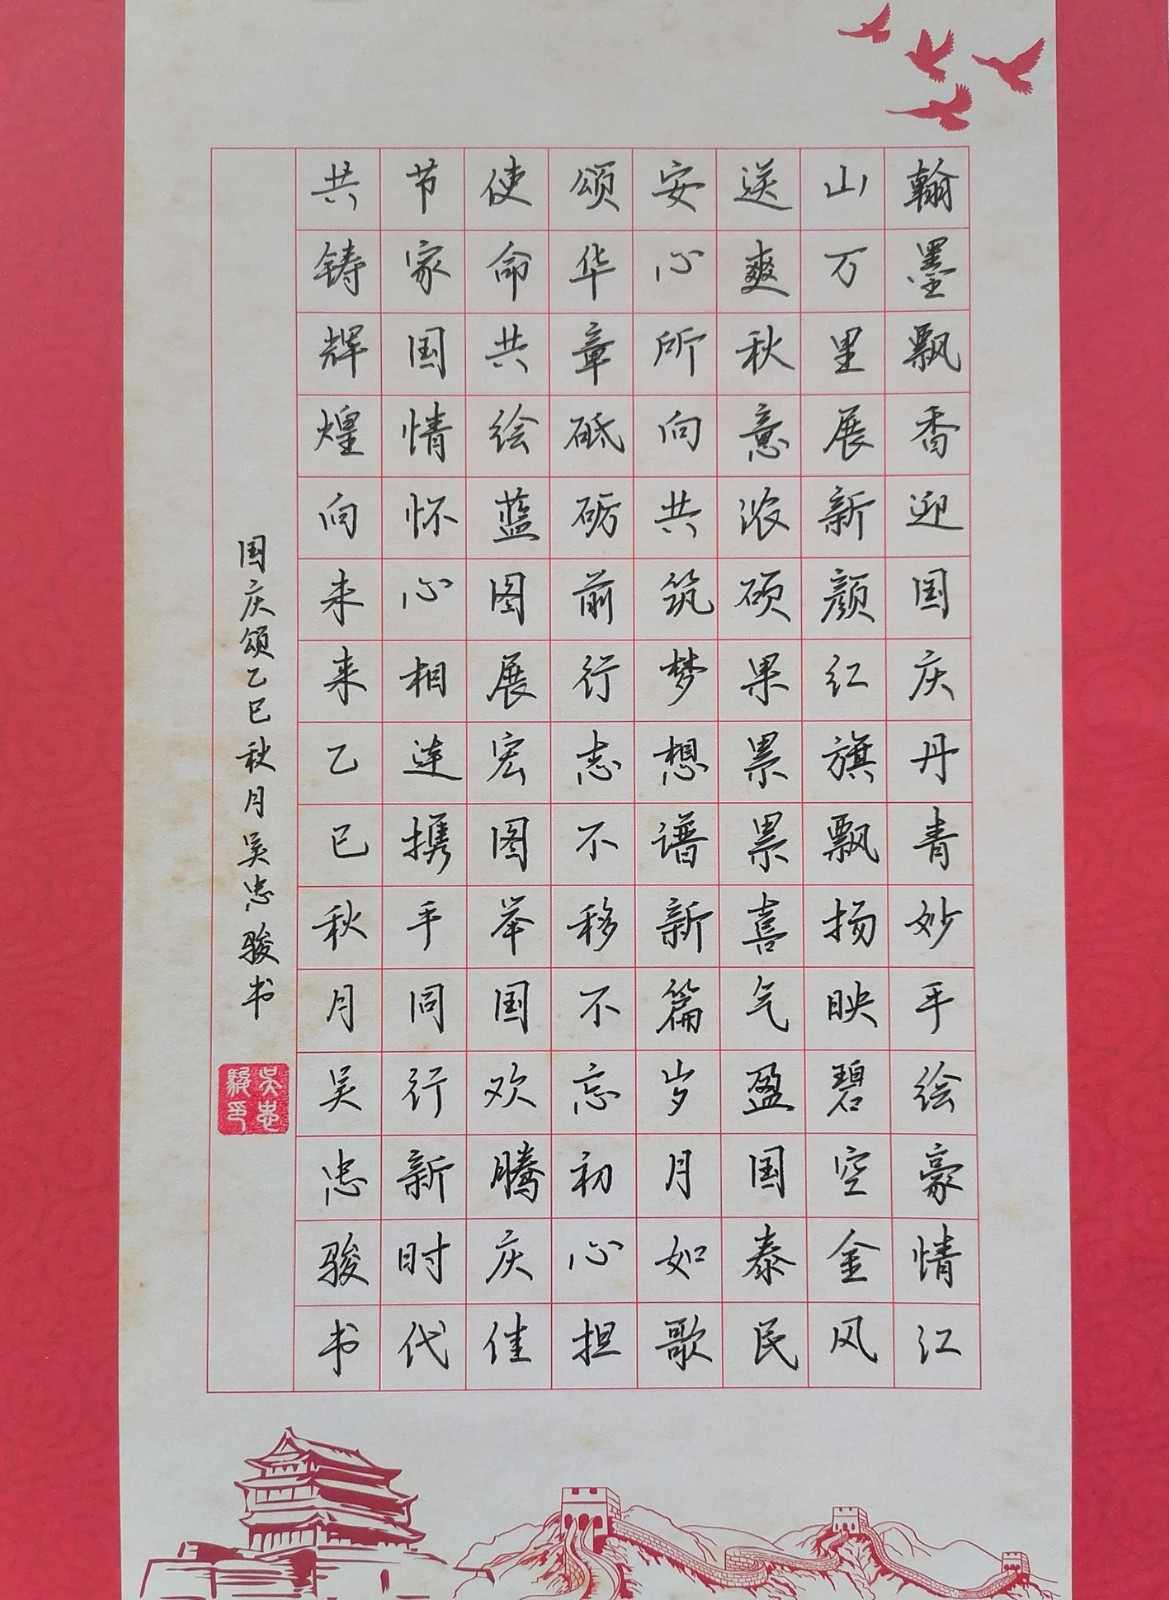 翰墨飘香迎国庆丹青妙手绘豪情江
山万里展新颜红旗飘扬映碧空金风
送爽秋意浓硕果累累喜气盈国泰民
安心所向共筑梦想谱新篇岁月如歌
颂华章砥砺前行志不移不忘初心担
使命共绘蓝图展宏图举国欢腾庆佳
节家国情怀心相连携手同行新时代
共铸辉煌向未来乙巳秋月吴忠骏书
国庆颂乙巳秋月吴忠骏书
吴忠骏印